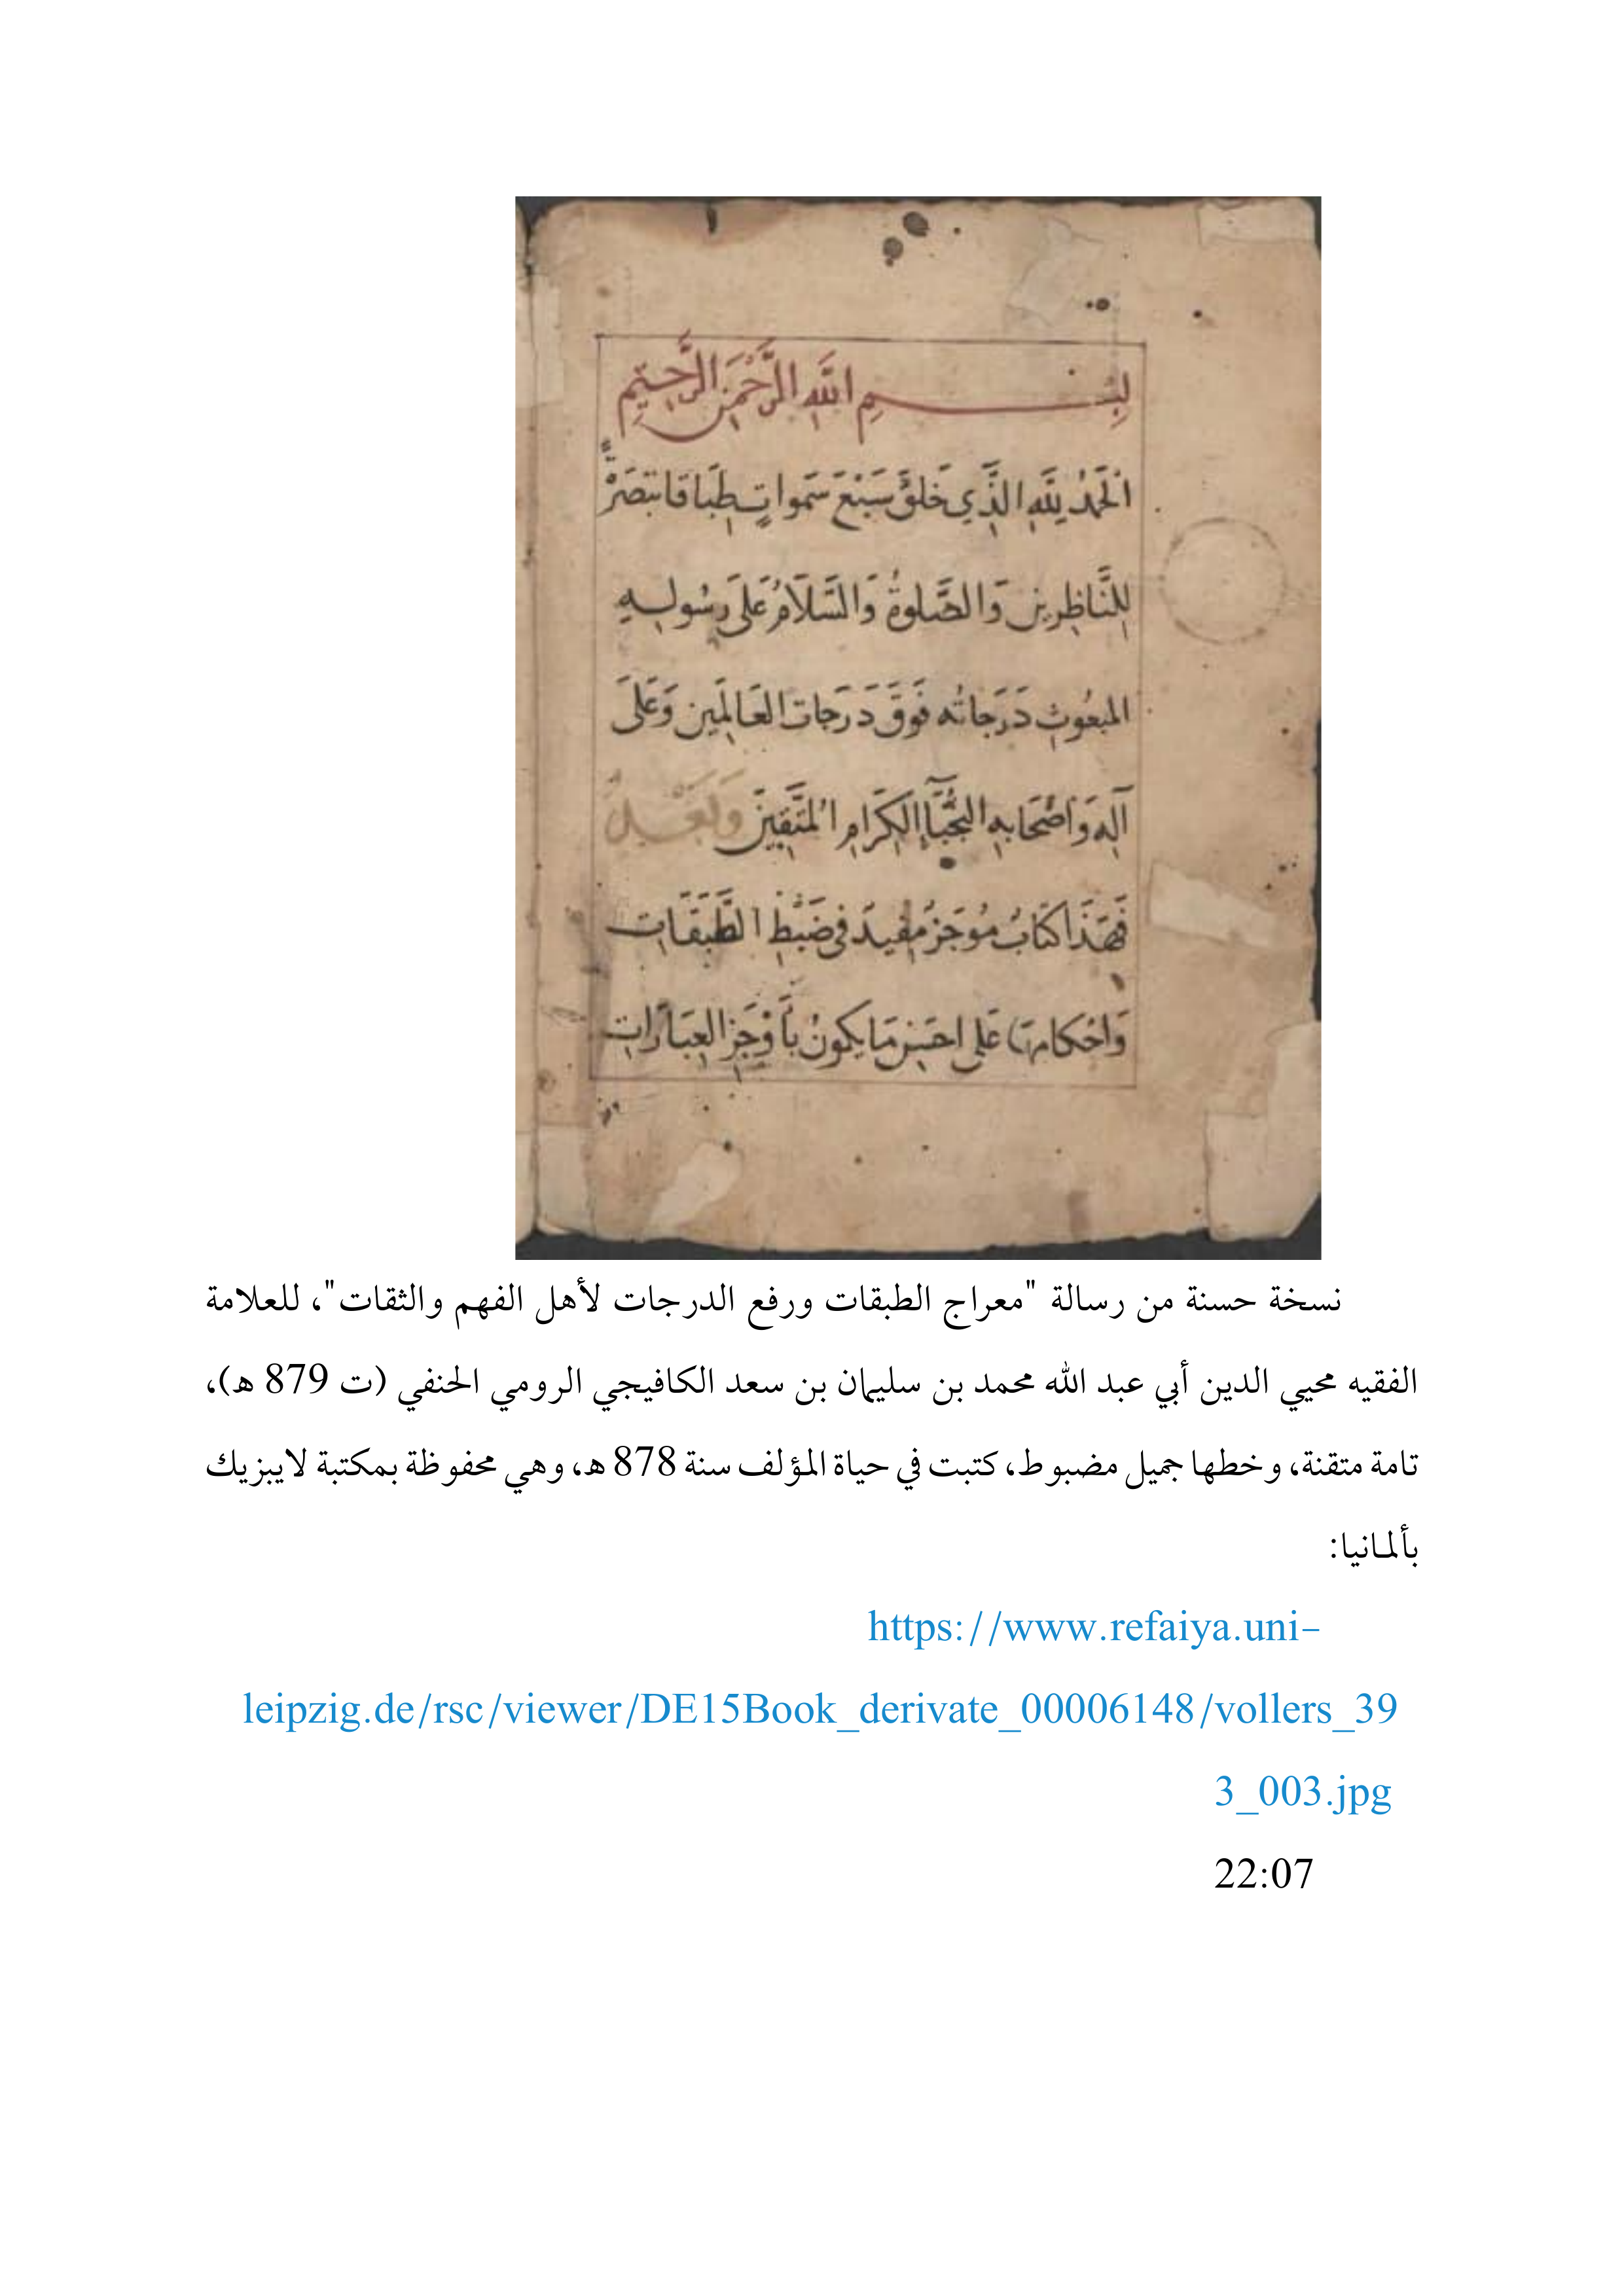 بِسْــــمِ اللَّهِ الرَّحْمَنِ الرَّحِيمِ
اَلْحَمْدُ لِلَّهِ الَّذِي خَلَقَ سَبْعَ سَمَواتٍ طِبَاقًا تبَصَرَةً
لِلنَّاظِرِين وَالصَّلوةُ وَالسَّلَامُ عَلَى رَسُولِهِ
المبعُوثِ دَرَجَاتُه فَوقَ دَرَجَات العَالَمِين وَعَلَى
آلِهِ وَاَصْحَابِهِ النُّجَبَآءِ الكِرَامِ المُتَّقِينَ وَبَعْدُ
فَهَذَا كِتَابٌ مُوجَزٌ مفِيدٌ فِي ضَبْطِ الطَّبَقَاتِ
وَاَحْكَامِهَا عَلَى احسَنِ مَا يكونُ بأَوْجَزِ العِبَارَاتِ
نسخة حسنة من رسالة "معراج الطبقات ورفع الدرجات لأهل الفهم والثقات"، للعلامة
الفقيه محيي الدين أبي عبد الله محمد بن سليمان بن سعد الكافيجي الرومي الحنفي (ت 879 هـ)،
تامة متقنة، وخطها جميل مضبوط، كتبت في حياة المؤلف سنة 878 هـ، وهي محفوظة بمكتبة لايبزيك
بألمانيا:
https://www.refaiya.uni-
leipzig.de/rsc/viewer/DE15Book_derivate_00006148/vollers_39
3_003.jpg
22:07